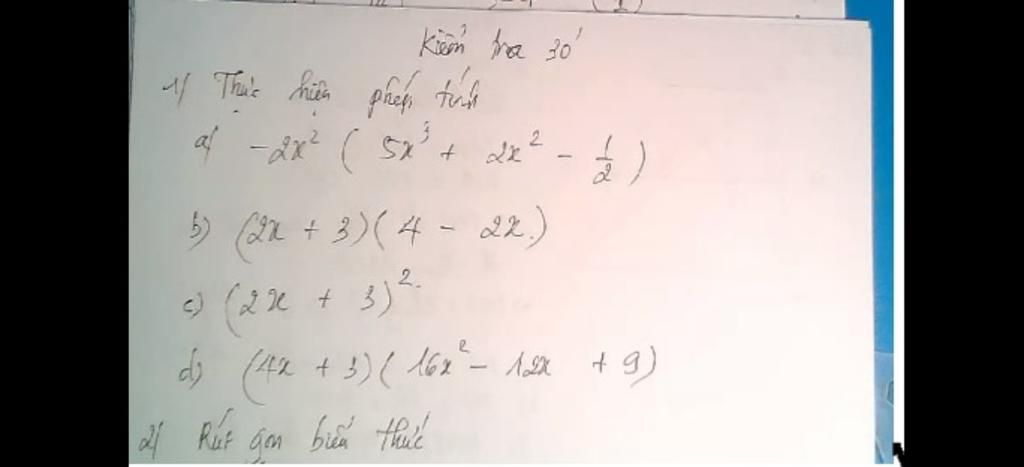 Kiểm tra 30'
1/ Thực hiện phép tính
a/ -2x² ( 5x³ + 2x² - 1/2 )
b) (2x + 3)( 4 - 2x.)
c) (2x + 3)².
d) (4x + 3)( 16x² - 12x + 9)
2/ Rút gọn biểu thức